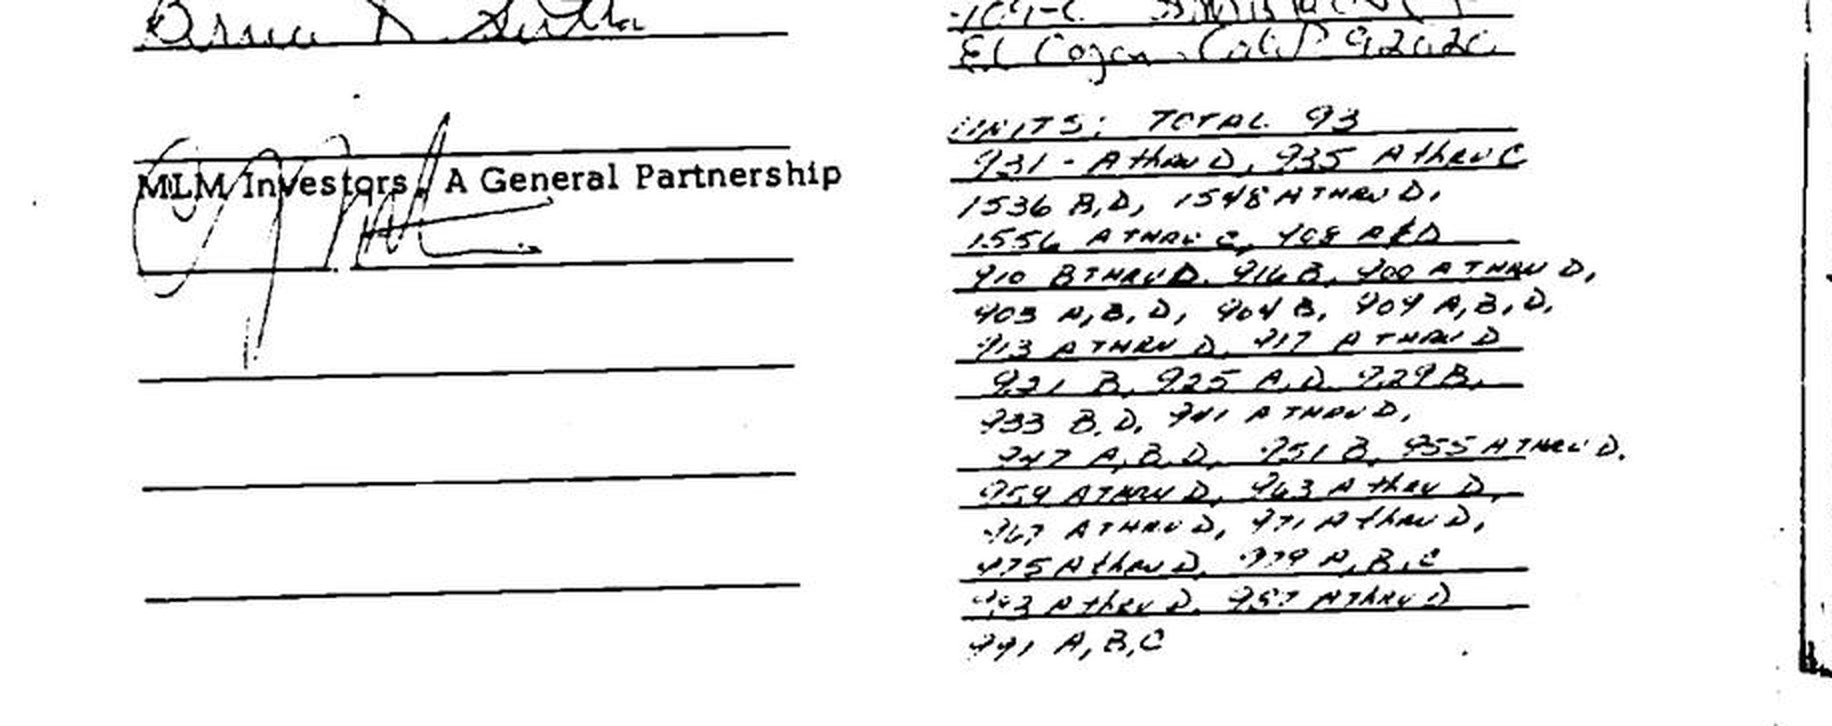 Bruce D.
El Cajon, Calif 92020
MLM Investors, A General Partnership
UNITS: TOTAL 93
931 - A thru D, 935 A thru C
1536 B,D, 1548 A THRU D,
1556 A THRU C, 908 A & D
910 B THRU D, 916 B, 900 A THRU D,
903 A,B,D, 904 B, 909 A,B,D,
913 A THRU D, 917 A THRU D
921 B, 925 A,D, 929 B,
933 B,D, 941 A THRU D,
947 A,B,D, 951 B, 955 A THRU D.
959 A THRU D, 963 A thru D,
967 A THRU D, 971 A thru D,
975 A thru D, 979 A,B,C
A thru D, A thru D
991 A,B,C